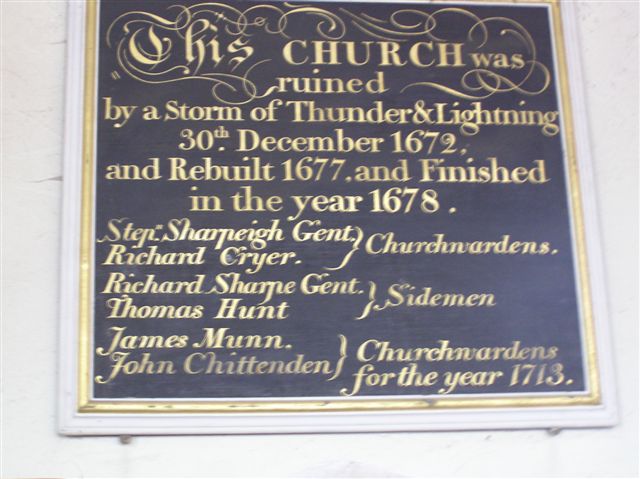 This CHURCH was
ruined
by a Storm of Thunder & Lightning
30th. December 1672,
and Rebuilt 1677, and Finished
in the year 1678.
Stepn. Sharpeigh Gent, } Churchwardens.
Richard Cryer.
Richard Sharpe Gent. } Sidemen
Thomas Hunt
James Munn. } Churchwardens
John Chittenden for the year 1713.